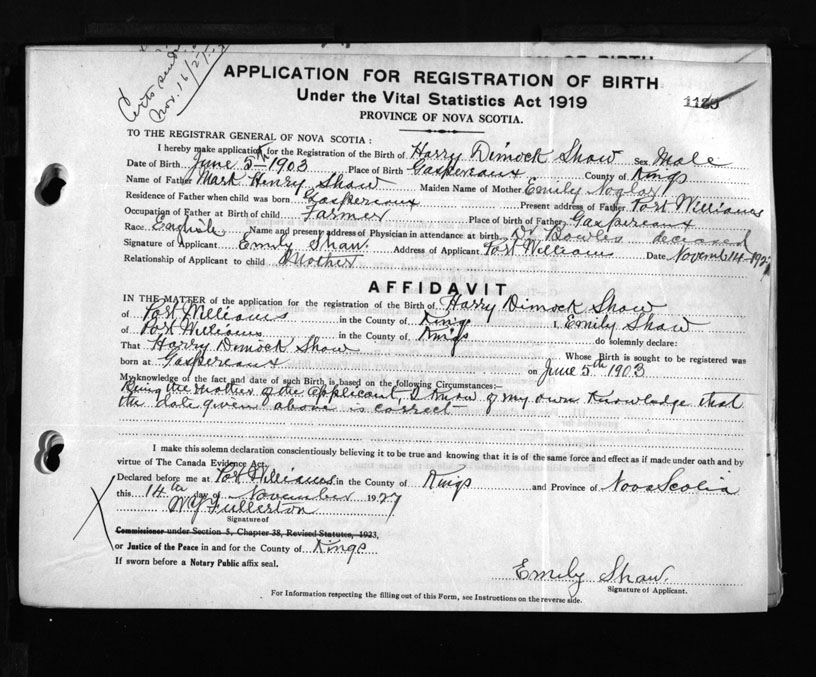 Nov. 16/27
APPLICATION FOR REGISTRATION OF BIRTH
Under the Vital Statistics Act 1919
1180
PROVINCE OF NOVA SCOTIA.
TO THE REGISTRAR GENERAL OF NOVA SCOTIA:
I hereby make application for the Registration of the Birth of Harry Dimock Shaw Sex Male
Date of Birth June 5th 1903 Place of Birth Gaspereaux County of Kings
Name of Father Mark Henry Shaw Maiden Name of Mother Emily
Residence of Father when child was born Gaspereaux Present address of Father Port Williams
Occupation of Father at Birth of child Farmer Place of birth of Father Gaspereaux
Race English Name and present address of Physician in attendance at birth Dr Bowles deceased
Signature of Applicant Emily Shaw. Address of Applicant Port Williams Date Novemb 14-1927
Relationship of Applicant to child Mother
AFFIDAVIT
IN THE MATTER of the application for the registration of the Birth of Harry Dimock Shaw
of Port Williams in the County of Kings I, Emily Shaw
of Port Williams in the County of Kings do solemnly declare:
That Harry Dimock Shaw Whose Birth is sought to be registered was
born at Gaspereaux on June 5th 1903
My knowledge of the fact and date of such Birth is based on the following Circumstances:—
Being the mother of the applicant, I know of my own knowledge that
the date given above is correct—
I make this solemn declaration conscientiously believing it to be true and knowing that it is of the same force and effect as if made under oath and by
virtue of The Canada Evidence Act.
Declared before me at Port Williams in the County of Kings and Province of Nova Scotia
this 14th day of November 1927
W J Fullerton
Signature of
Commissioner under Section 5, Chapter 38, Revised Statutes, 1923,
or Justice of the Peace in and for the County of Kings
If sworn before a Notary Public affix seal.
Emily Shaw.
Signature of Applicant.
For Information respecting the filling out of this Form, see Instructions on the reverse side.